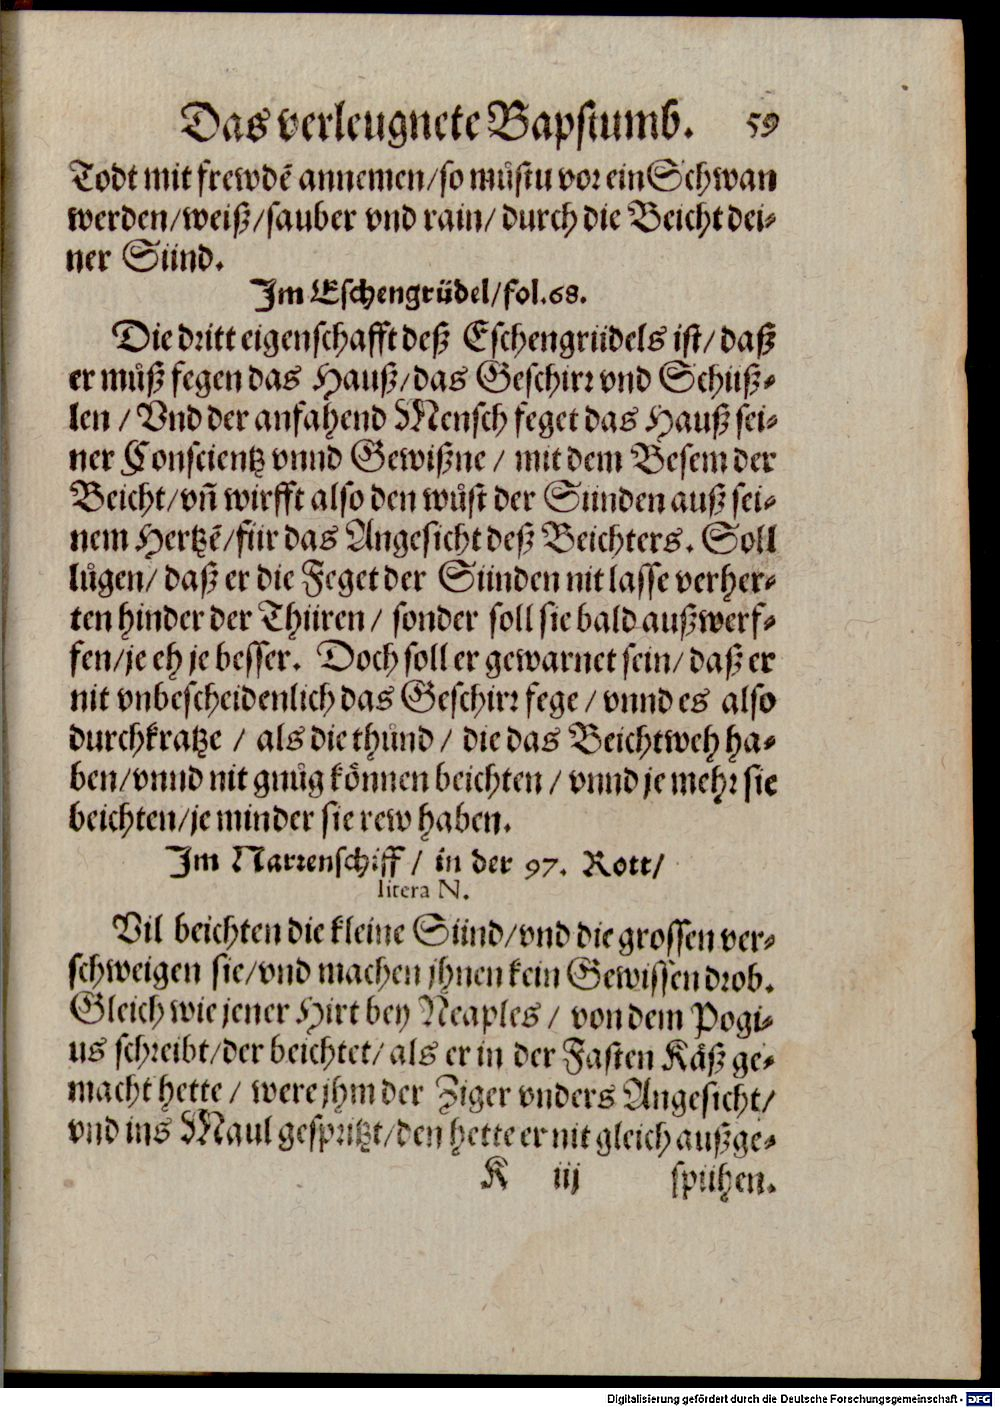 Das verleugnete Bapstumb. 59
Todt mit frewdẽ annemen/so můstu vor ein Schwan
werden/weiß/sauber vnd rain/ durch die Beicht dei-
ner Sünd.
Im Eschengrüdel/fol.68.
Die dritt eigenschafft deß Eschengrüdels ist/ daß
er můß fegen das Hauß/das Geschirr vnd Schüß-
len / Vnd der anfahend Mensch feget das Hauß sei-
ner Conscientz vnnd Gewißne / mit dem Besem der
Beicht/vñ wirfft also den wůst der Sünden auß sei-
nem Hertzẽ/für das Angesicht deß Beichters. Soll
lůgen/ daß er die Feget der Sünden nit lasse verher-
ten hinder der Thüren / sonder soll sie bald außwerf-
fen/je eh je besser. Doch soll er gewarnet sein/ daß er
nit vnbescheidenlich das Geschirr fege / vnnd es also
durchkratze / als die thůnd / die das Beichtweh ha-
ben/vnnd nit gnůg können beichten / vnnd je mehr sie
beichten/je minder sie rew haben.
Im Narrenschiff / in der 97. Rott/
litera N.
Vil beichten die kleine Sünd/vnd die grossen ver-
schweigen sie/vnd machen jhnen kein Gewissen drob.
Gleich wie jener Hirt bey Neaples / von dem Pogi-
us schreibt/der beichtet/ als er in der Fasten Käß ge-
macht hette / were jhm der Ziger vnders Angesicht/
vnd ins Maul gespritzt/den hette er nit gleich außge-
K iij spühen.
Digitalisierung gefördert durch die Deutsche Forschungsgemeinschaft - DFG